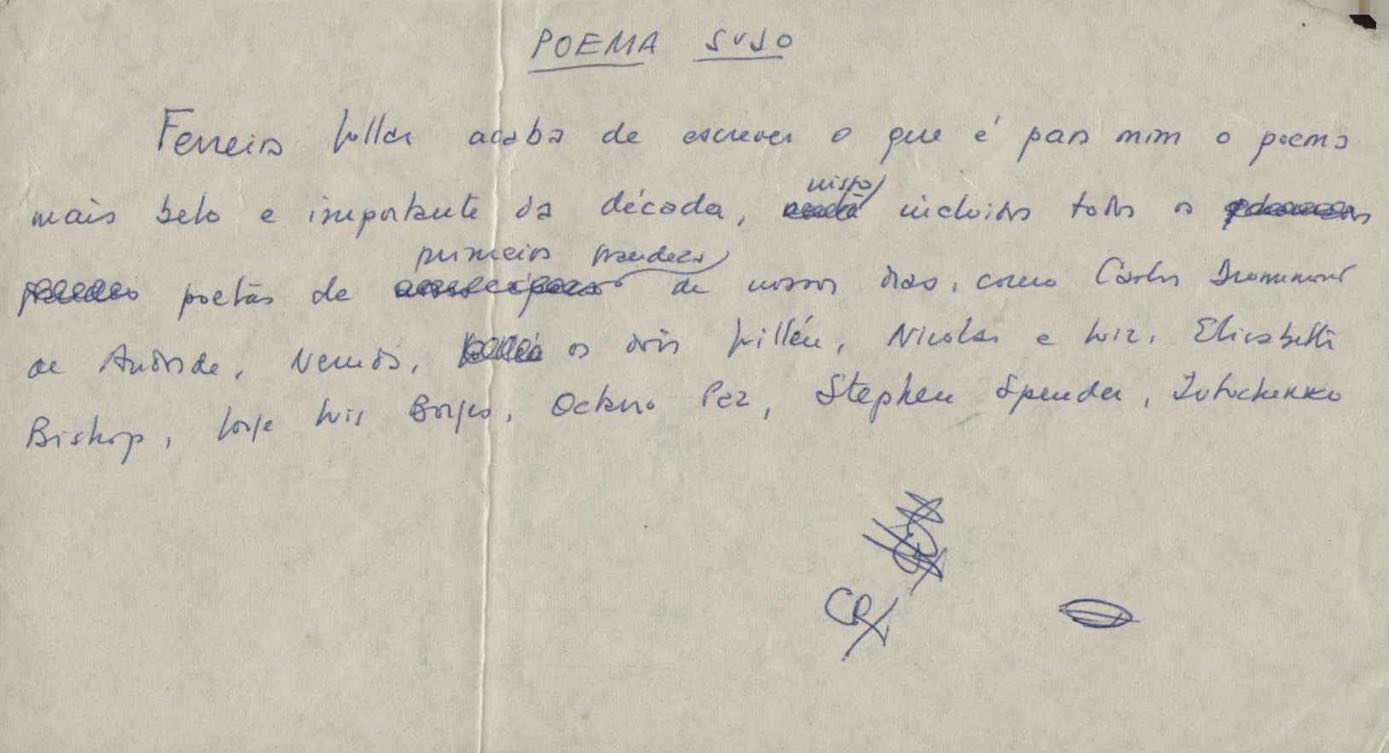 POEMA SUJO
Ferreira Gullar acaba de escrever o que é para mim o poema
mais belo e importante da década, nisto incluidos todos os
poetas de primeira grandeza de nossos dias, como Carlos Drummond
de Andrade, Neruda, os dois Guillén, Nicolas e Luiz, Elizabeth
Bishop, Jorge Luis Borges, Octavio Paz, Stephen Spender, Ievtuchenko